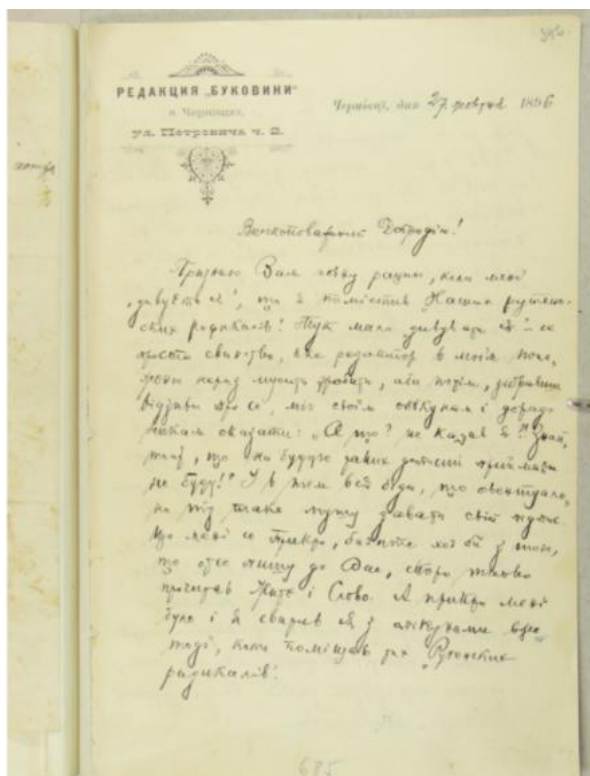 РЕДАКЦИЯ „БУКОВИНИ"
в Чернівцях,
ул. Петровича ч. 2.
Чернівці, дня 27 1896
Високоповажний Добродію!
Признаю Вам повну рацию, коли мені
„дивуєте ся", що я помістив „Наших рутен-
ских радикалів". Тут мало дивувати ся – се
просто свинство, яке редактор в моїм поло-
женю мусить зробити, аби потім, зібравши
відзиви про се, міг своїм опікунам і дорад-
никам сказати: „А що? не казав я? Знай-
те ж, що на будуще таких дописий приймати
не буду!" І в тім вся біда, що
на під таке мушу давати свій
Що мені се прикро, бачите хоч би з того,
що отсе пишу до Вас, скоро тілько
прочитав Житє і Слово. А прикро мені
було і я сварив ся з опікунами вже
тоді, коли поміщав тих „Рутенских
радикалів".
685